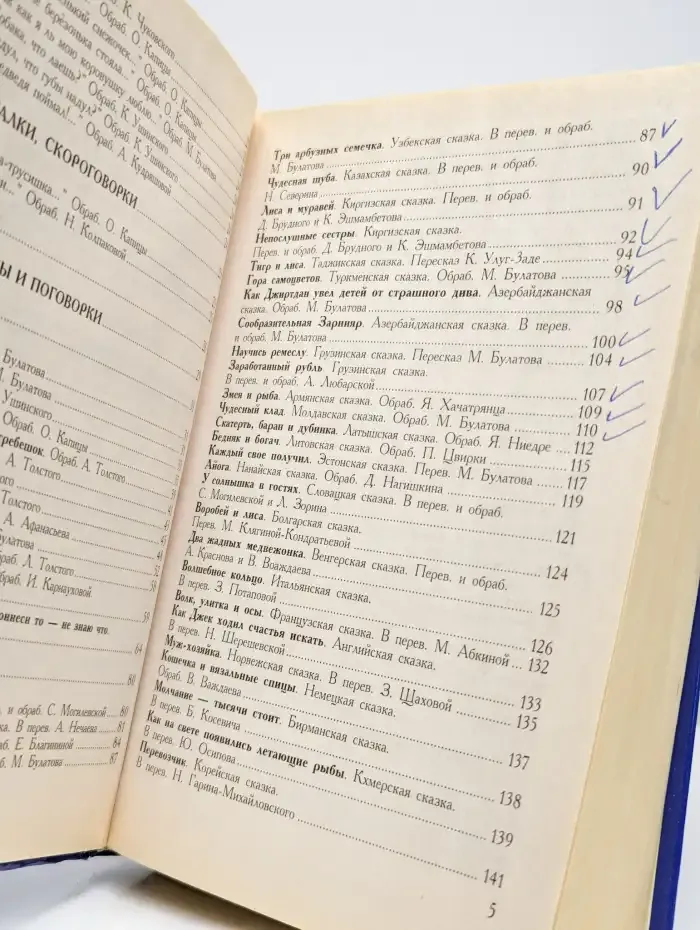 К. Чуковского
Обраб. О. Капицы
енький снежочек..." Обраб. О. Капицы
й, бережёнька стояла..." Обраб. О. Капицы
как я ль мою коровушку люблю..." Обраб. М. Булатова
обака, что лаешь?" Обраб. К. Ушинского
дул, что губы надул?" Обраб. К. Ушинского
едведя поймал!..." Обраб. А. Кудрашной
АЛКИ, СКОРОГОВОРКИ
а-трусишка..." Обраб. О. Капицы
и..." Обраб. Н. Колпаковой
Ы И ПОГОВОРКИ
Булатова
М. Булатова
Ушинского
Обраб. О. Капицы
ребешок. Обраб. А. Толстого
А. Толстого
того
Толстого
А. Афанасьева
улатова
раб. Л. Толстого
браб. И. Карнауховой
59
ринеси то — не знаю что.
64
80
и обраб. С. Могилевской 80
ка. В перев. А. Нечаева 81
аб. Е. Благининой 84
аб. М. Булатова 87
Три арбузных семечка. Узбекская сказка. В перев. и обраб.
М. Булатова 87
Чудесная шуба. Казахская сказка. В перев. и обраб.
Н. Северина 90
Лиса и муравей. Киргизская сказка. Перев. и обраб.
Д. Брудного и К. Эшмамбетова 91
Непослушные сестры. Киргизская сказка.
Перев. и обраб. Д. Брудного и К. Эшмамбетова 92
Тигр и лиса. Таджикская сказка. Пересказ К. Улуг-Заде 94
Гора самоцветов. Туркменская сказка. Обраб. М. Булатова 95
Как Джиртдан увел детей от страшного дива. Азербайджанская
сказка. Обраб. М. Булатова 98
Сообразительная Зарнияр. Азербайджанская сказка. В перев.
и обраб. М. Булатова 100
Научись ремеслу. Грузинская сказка. Пересказ М. Булатова 104
Заработанный рубль. Грузинская сказка.
В перев. и обраб. А. Любарской 107
Змея и рыба. Армянская сказка. Обраб. Я. Хачатрянца 109
Чудесный клад. Молдавская сказка. Обраб. М. Булатова 110
Скатерть, баран и дубинка. Латышская сказка. Обраб. Я. Ниедре 112
Бедняк и богач. Литовская сказка. Обраб. П. Цвирки 115
Каждый свое получил. Эстонская сказка. Перев. М. Булатова 117
Айога. Нанайская сказка. Обраб. Д. Нагишкина 119
У солнышка в гостях. Словацкая сказка. В перев. и обраб.
С. Могилевской и Л. Зорина 121
Воробей и лиса. Болгарская сказка.
Перев. М. Клягиной-Кондратьевой 124
Два жадных медвежонка. Венгерская сказка. Перев. и обраб.
А. Краснова и В. Воаждаева 125
Волшебное кольцо. Итальянская сказка.
В перев. З. Потаповой 126
Волк, улитка и осы. Французская сказка. В перев. М. Абкиной 132
Как Джек ходил счастья искать. Английская сказка.
В перев. Н. Шерешевской 133
Муж-хозяйка. Норвежская сказка. В перев. З. Шаховой 135
Кошечка и вязальные спицы. Немецкая сказка.
Обраб. В. Важдаева 137
Молчание — тысячи стоит. Бирманская сказка.
В перев. Б. Косевича 138
Как на свете появились летающие рыбы. Кхмерская сказка.
В перев. Ю. Осипова 139
Перевозчик. Корейская сказка.
В перев. Н. Гарина-Михайловского 141
5